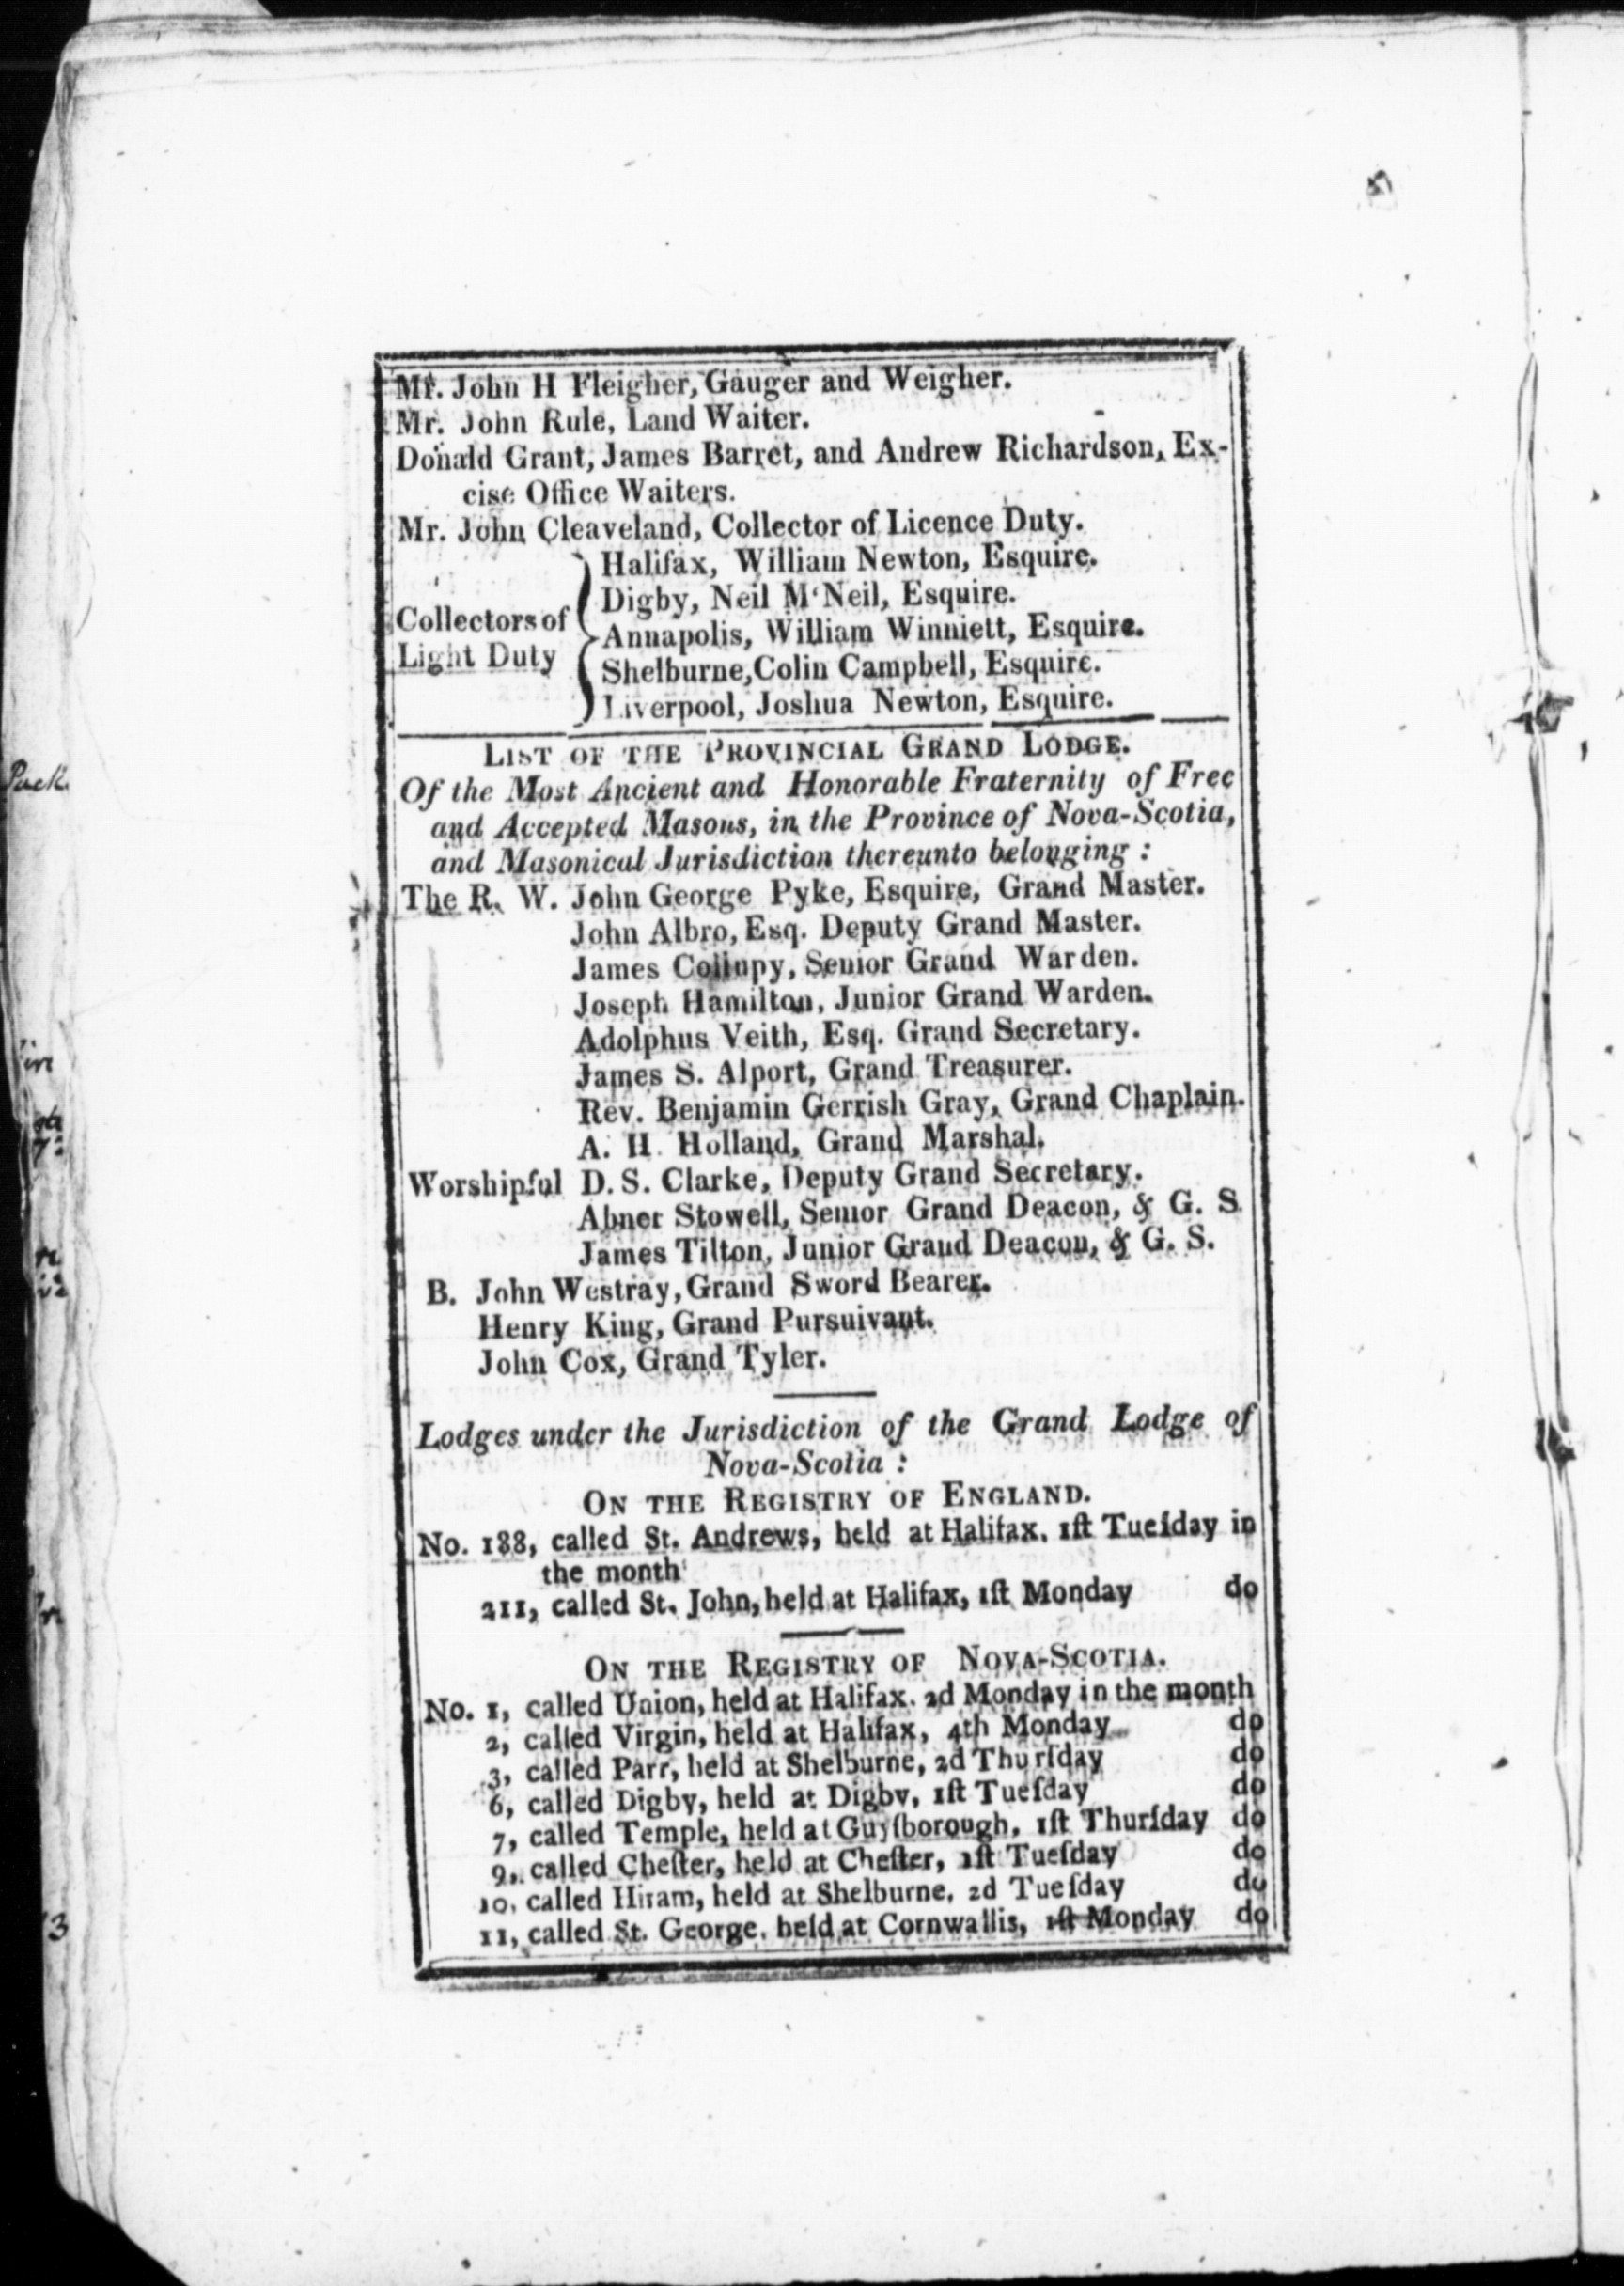 Mr. John H Fleigher, Gauger and Weigher.
Mr. John Rule, Land Waiter.
Donald Grant, James Barret, and Andrew Richardson, Ex-
cise Office Waiters.
Mr. John Cleaveland, Collector of Licence Duty.
Collectors of Light Duty
Halifax, William Newton, Esquire.
Digby, Neil M'Neil, Esquire.
Annapolis, William Winniett, Esquire.
Shelburne, Colin Campbell, Esquire.
Liverpool, Joshua Newton, Esquire.
LIST OF THE PROVINCIAL GRAND LODGE.
Of the Most Ancient and Honorable Fraternity of Free
and Accepted Masons, in the Province of Nova-Scotia,
and Masonical Jurisdiction thereunto belonging :
The R. W. John George Pyke, Esquire, Grand Master.
John Albro, Esq. Deputy Grand Master.
James Senior Grand Warden.
Joseph Hamilton, Junior Grand Warden.
Adolphus Veith, Esq. Grand Secretary.
James S. Alport, Grand Treasurer.
Rev. Benjamin Gerrish Gray, Grand Chaplain.
A. H. Holland, Grand Marshal.
Worshipful D. S. Clarke, Deputy Grand Secretary.
Abner Stowell, Senior Grand Deacon, & G. S
James Tilton, Junior Grand Deacon, & G. S.
B. John Westray, Grand Sword Bearer.
Henry King, Grand Pursuivant.
John Cox, Grand Tyler.
Lodges under the Jurisdiction of the Grand Lodge of
Nova-Scotia :
ON THE REGISTRY OF ENGLAND.
No. 188, called St. Andrews, held at Halifax, 1ſt Tueſday in
the month
211, called St. John, held at Halifax, 1ſt Monday do
ON THE REGISTRY OF NOVA-SCOTIA.
No. 1, called Union, held at Halifax. 2d Monday in the month
2, called Virgin, held at Halifax, 4th Monday do
3, called Parr, held at Shelburne, 2d Thurſday do
6, called Digby, held at Digby, 1ſt Tueſday do
7, called Temple, held at Guyſborough, 1ſt Thurſday do
9, called Cheſter, held at Cheſter, 1ſt Tueſday do
10, called Hiram, held at Shelburne, 2d Tueſday do
11, called St. George, held at Cornwallis, 1ſt Monday do